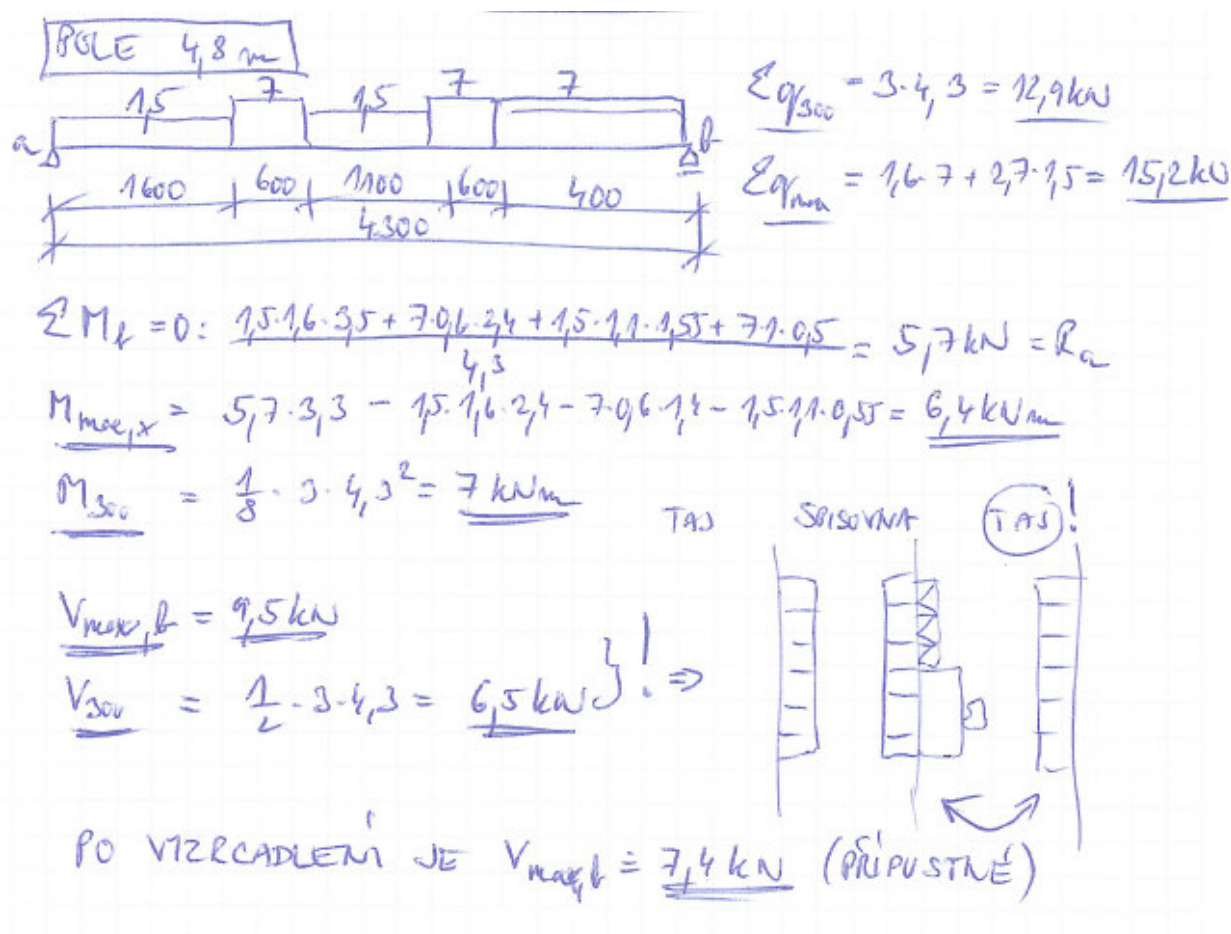 POLE 4,8 m
1,5 7 1,5 7 7
a b
1600 600 1100 600 400
4300
Σq300 = 3·4,3 = 12,9kN
Σqmax = 1,6·7 + 2,7·1,5 = 15,2kN
ΣMb = 0: 1,5·1,6·3,5 + 7·0,6·2,4 + 1,5·1,1·1,55 + 7·1·0,5 = 5,7kN = Ra
4,3
Mmax,x = 5,7·3,3 - 1,5·1,6·2,4 - 7·0,6·1,4 - 1,5·1,1·0,55 = 6,4kNm
M300 = 1/8 · 3·4,3² = 7 kNm
TAJ SPISOVNA TAJ!
Vmax,b = 9,5kN
V300 = 1/2 · 3·4,3 = 6,5kN } ! ⇒
PO VYZRCADLENÍ JE Vmax,b = 7,4 kN (PŘÍPUSTNÉ)